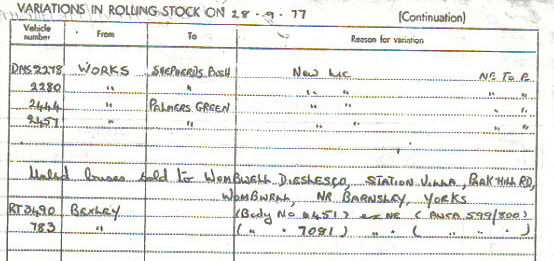 VARIATIONS IN ROLLING STOCK ON 28.9.77 (Continuation)
Vehicle number From To Reason for variation
DMS2278 WORKS SHEPHERDS BUSH New Lic NE To PE
2280 " " " " " "
2444 " PALMERS GREEN " " " "
2457 " " " " " "
buses sold to WOMBWELL DIESELS CO, STATION VILLA, PARK HILL RD,
WOMBWELL, NR BARNSLEY, YORKS
RT3490 BEXLEY (Body No 6451) ex NE ( 599/800)
783 " ( " " 7081) " " ( " " " )